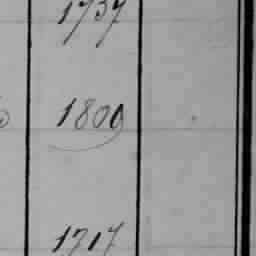 1737
1809
1717